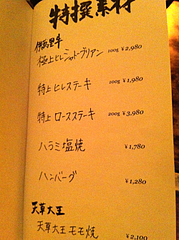 特撰素材
伊萬里牛
極上ヒレシャトーブリアン 100g ¥2,980
特上ヒレステーキ 100g ¥1,980
特上ロースステーキ 200g ¥3,980
ハラミ塩焼 ¥1,780
ハンバーグ ¥1,280
天草大王
天草大王モモ焼 ¥2,100